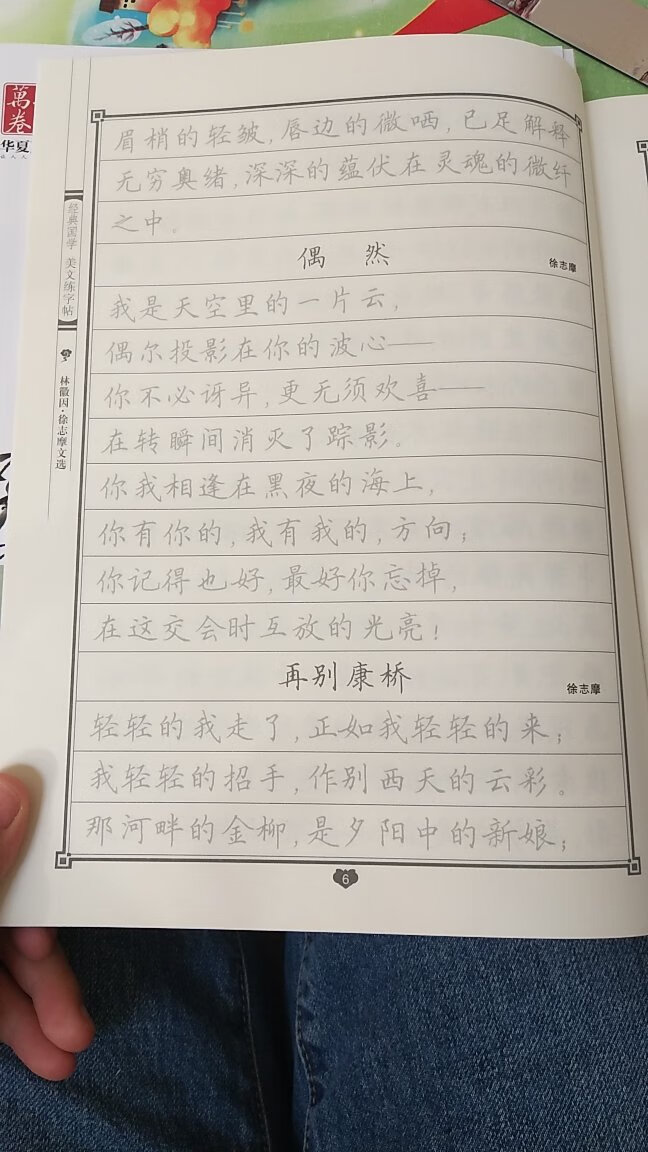 萬卷
华夏
经典国学 美文练字帖
林徽因·徐志摩文选
眉梢的轻皱,唇边的微哂,已足解释
无穷奥绪,深深的蕴伏在灵魂的微纤
之中。
偶然
徐志摩
我是天空里的一片云,
偶尔投影在你的波心——
你不必讶异,更无须欢喜——
在转瞬间消灭了踪影。
你我相逢在黑夜的海上,
你有你的,我有我的,方向;
你记得也好,最好你忘掉,
在这交会时互放的光亮!
再别康桥
徐志摩
轻轻的我走了,正如我轻轻的来;
我轻轻的招手,作别西天的云彩。
那河畔的金柳,是夕阳中的新娘;
6